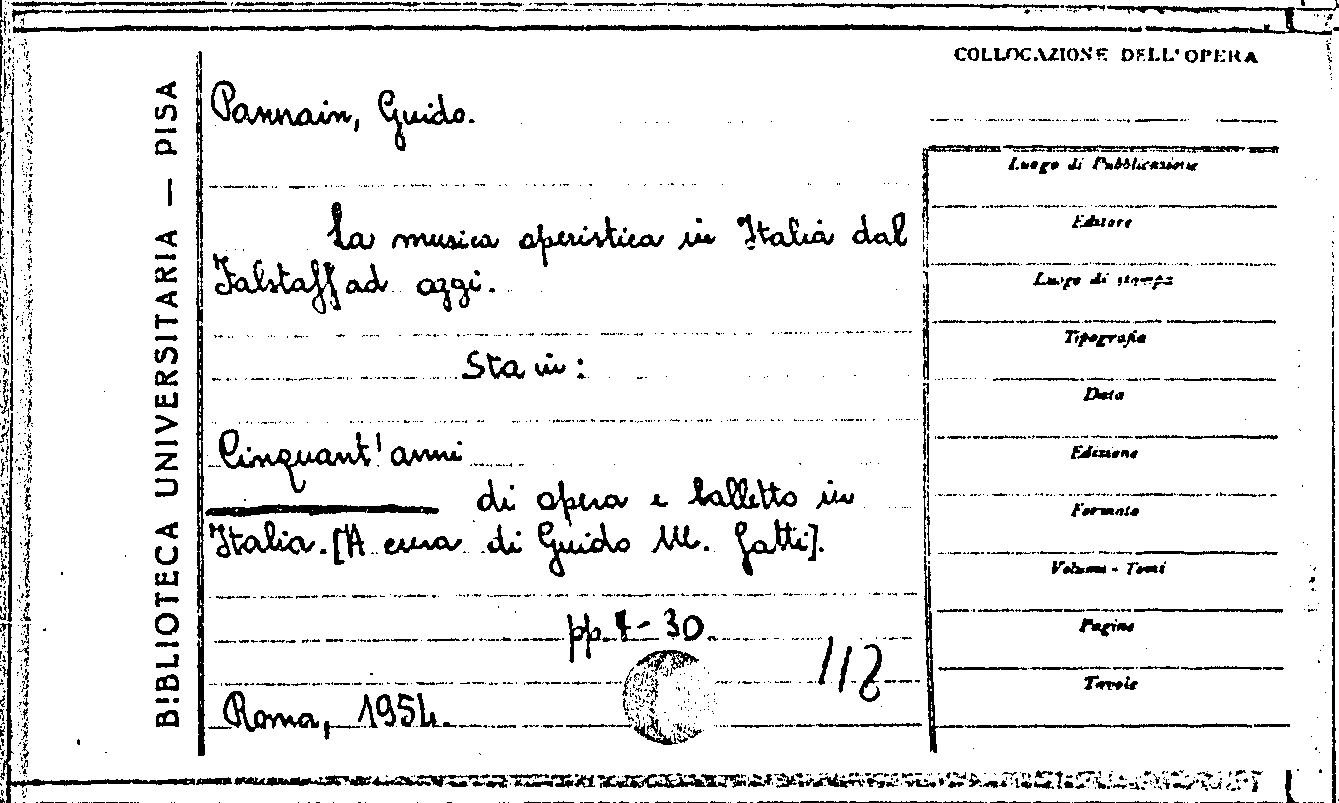 BIBLIOTECA UNIVERSITARIA — PISA
COLLOCAZIONE DELL'OPERA
Pannain, Guido.
La musica operistica in Italia dal
Falstaff ad oggi.
Sta in:
Cinquant'anni
di opera e balletto in
Italia. [A cura di Guido M. Gatti].
pp. 7-30.
118
Roma, 1954.
Luogo di Pubblicazione
Editore
Luogo di stampa
Tipografia
Data
Edizione
Formato
Volume - Tomi
Pagine
Tavole